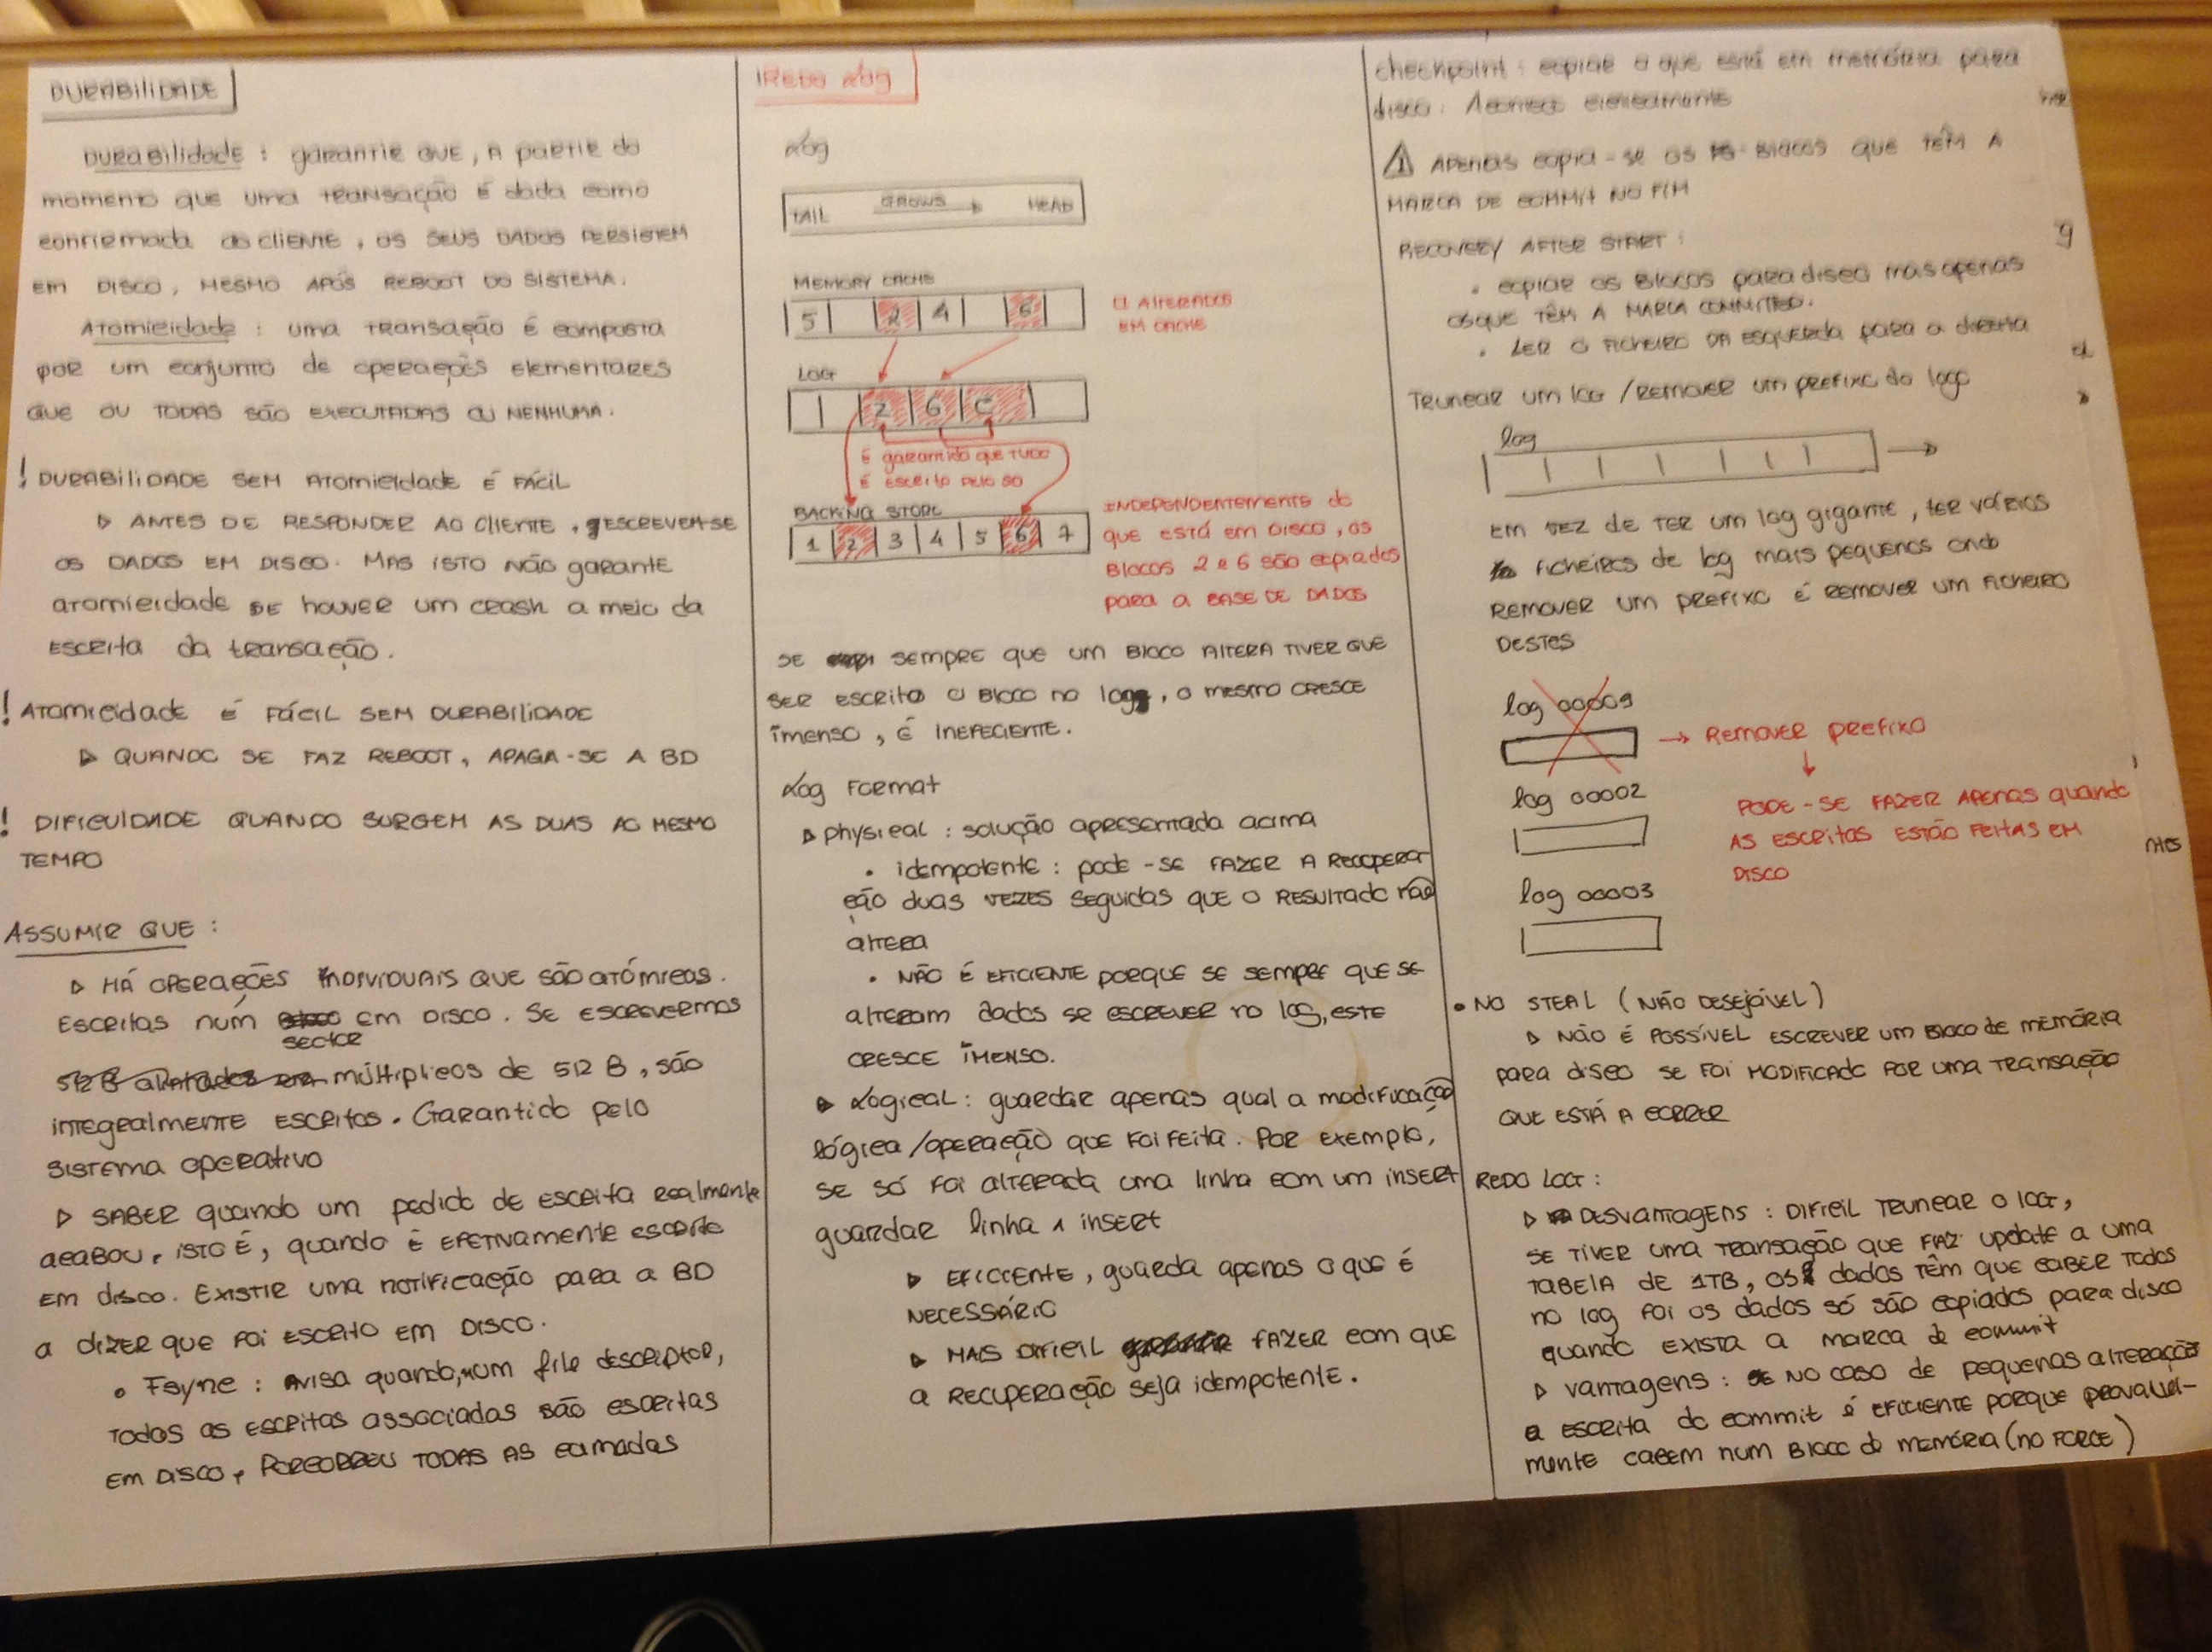 DURABILIDADE
DURABILIDADE : GARANTIR QUE, A PARTIR DO
MOMENTO QUE UMA TRANSAÇÃO É DADA COMO
CONFIRMADA AO CLIENTE, OS SEUS DADOS PERSISTEM
EM DISCO, MESMO APÓS REBOOT DO SISTEMA.
ATOMICIDADE : UMA TRANSAÇÃO É COMPOSTA
POR UM CONJUNTO DE OPERAÇÕES ELEMENTARES
QUE OU TODAS SÃO EXECUTADAS OU NENHUMA.
! DURABILIDADE SEM ATOMICIDADE É FÁCIL
▷ ANTES DE RESPONDER AO CLIENTE, ESCREVEM-SE
OS DADOS EM DISCO. MAS ISTO NÃO GARANTE
ATOMICIDADE SE HOUVER UM CRASH A MEIO DA
ESCRITA DA TRANSAÇÃO.
! ATOMICIDADE É FÁCIL SEM DURABILIDADE
▷ QUANDO SE FAZ REBOOT, APAGA-SE A BD
! DIFICULDADE QUANDO SURGEM AS DUAS AO MESMO
TEMPO
ASSUMIR QUE :
▷ HÁ OPERAÇÕES INDIVIDUAIS QUE SÃO ATÓMICAS.
ESCRITAS NUM SECTOR EM DISCO. SE ESCREVERMOS
MÚLTIPLICOS DE 512 B, SÃO
INTEGRALMENTE ESCRITOS. GARANTIDO PELO
SISTEMA OPERATIVO
▷ SABER QUANDO UM PEDIDO DE ESCRITA REALMENTE
ACABOU, ISTO É, QUANDO É EFETIVAMENTE ESCRITO
EM DISCO. EXISTIR UMA NOTIFICAÇÃO PARA A BD
A DIZER QUE FOI ESCRITO EM DISCO.
• FSYNC : AVISA QUANDO, NUM FILE DESCRIPTOR,
TODAS AS ESCRITAS ASSOCIADAS SÃO ESCRITAS
EM DISCO, PERCORREU TODAS AS CAMADAS
REDO LOG
LOG
TAIL GROWS HEAD
MEMORY CACHE
5 2 4 6
ALTERADOS
EM CACHE
LOG
2 6 C
É GARANTIDO QUE TUDO
É ESCRITO PELO SO
BACKING STORE
1 2 3 4 5 6 7
INDEPENDENTEMENTE DO
QUE ESTÁ EM DISCO, OS
BLOCOS 2 e 6 SÃO COPIADOS
PARA A BASE DE DADOS
SE SEMPRE QUE UM BLOCO ALTERA TIVER QUE
SER ESCRITO O BLOCO NO LOG, O MESMO CRESCE
IMENSO, É INEFICIENTE.
LOG FORMAT
▷ PHYSICAL : SOLUÇÃO APRESENTADA ACIMA
• IDEMPOTENTE : PODE-SE FAZER A RECUPERA
ÇÃO DUAS VEZES SEGUIDAS QUE O RESULTADO NÃO
ALTERA
• NÃO É EFICIENTE PORQUE SE SEMPRE QUE SE
ALTERAM DADOS SE ESCREVER NO LOG, ESTE
CRESCE IMENSO.
▷ LOGICAL : GUARDAR APENAS QUAL A MODIFICAÇÃO
LÓGICA/OPERAÇÃO QUE FOI FEITA. POR EXEMPLO,
SE SÓ FOI ALTERADA UMA LINHA COM UM INSERT
GUARDAR LINHA 1 INSERT
▷ EFICIENTE, GUARDA APENAS O QUE É
NECESSÁRIO
▷ MAIS DIFICIL FAZER COM QUE
A RECUPERAÇÃO SEJA IDEMPOTENTE.
CHECKPOINT : COPIAR O QUE ESTÁ EM MEMÓRIA PARA
DISCO. ACONTECE CICLICAMENTE
⚠ APENAS COPIA-SE OS BLOCOS QUE TÊM A
MARCA DE COMMIT NO FIM
RECOVERY AFTER START :
• COPIAR OS BLOCOS PARA DISCO MAS APENAS
OS QUE TÊM A MARCA COMMITED.
• LER O FICHEIRO DA ESQUERDA PARA A DIREITA
TRUNCAR UM LOG / REMOVER UM PREFIXO DO LOGO
log
EM VEZ DE TER UM LOG GIGANTE, TER VÁRIOS
FICHEIROS DE LOG MAIS PEQUENOS ONDE
REMOVER UM PREFIXO É REMOVER UM FICHEIRO
DESTES
→ REMOVER PREFIXO
log 00002
PODE-SE FAZER APENAS QUANDO
AS ESCRITAS ESTÃO FEITAS EM
DISCO
log 00003
• NO STEAL (NÃO DESEJÁVEL)
▷ NÃO É POSSÍVEL ESCREVER UM BLOCO DE MEMÓRIA
PARA DISCO SE FOI MODIFICADO POR UMA TRANSAÇÃO
QUE ESTÁ A CORRER
REDO LOG :
▷ DESVANTAGENS : DIFICIL TRUNCAR O LOG,
SE TIVER UMA TRANSAÇÃO QUE FAZ UPDATE A UMA
TABELA DE 1TB, OS DADOS TÊM QUE CABER TODOS
NO LOG POIS OS DADOS SÓ SÃO COPIADOS PARA DISCO
QUANDO EXISTA A MARCA DE COMMIT
▷ VANTAGENS : NO CASO DE PEQUENAS ALTERAÇÕES
A ESCRITA DO COMMIT É EFICIENTE PORQUE PROVAVEL-
MENTE CABEM NUM BLOCO DE MEMÓRIA (NO FORCE)